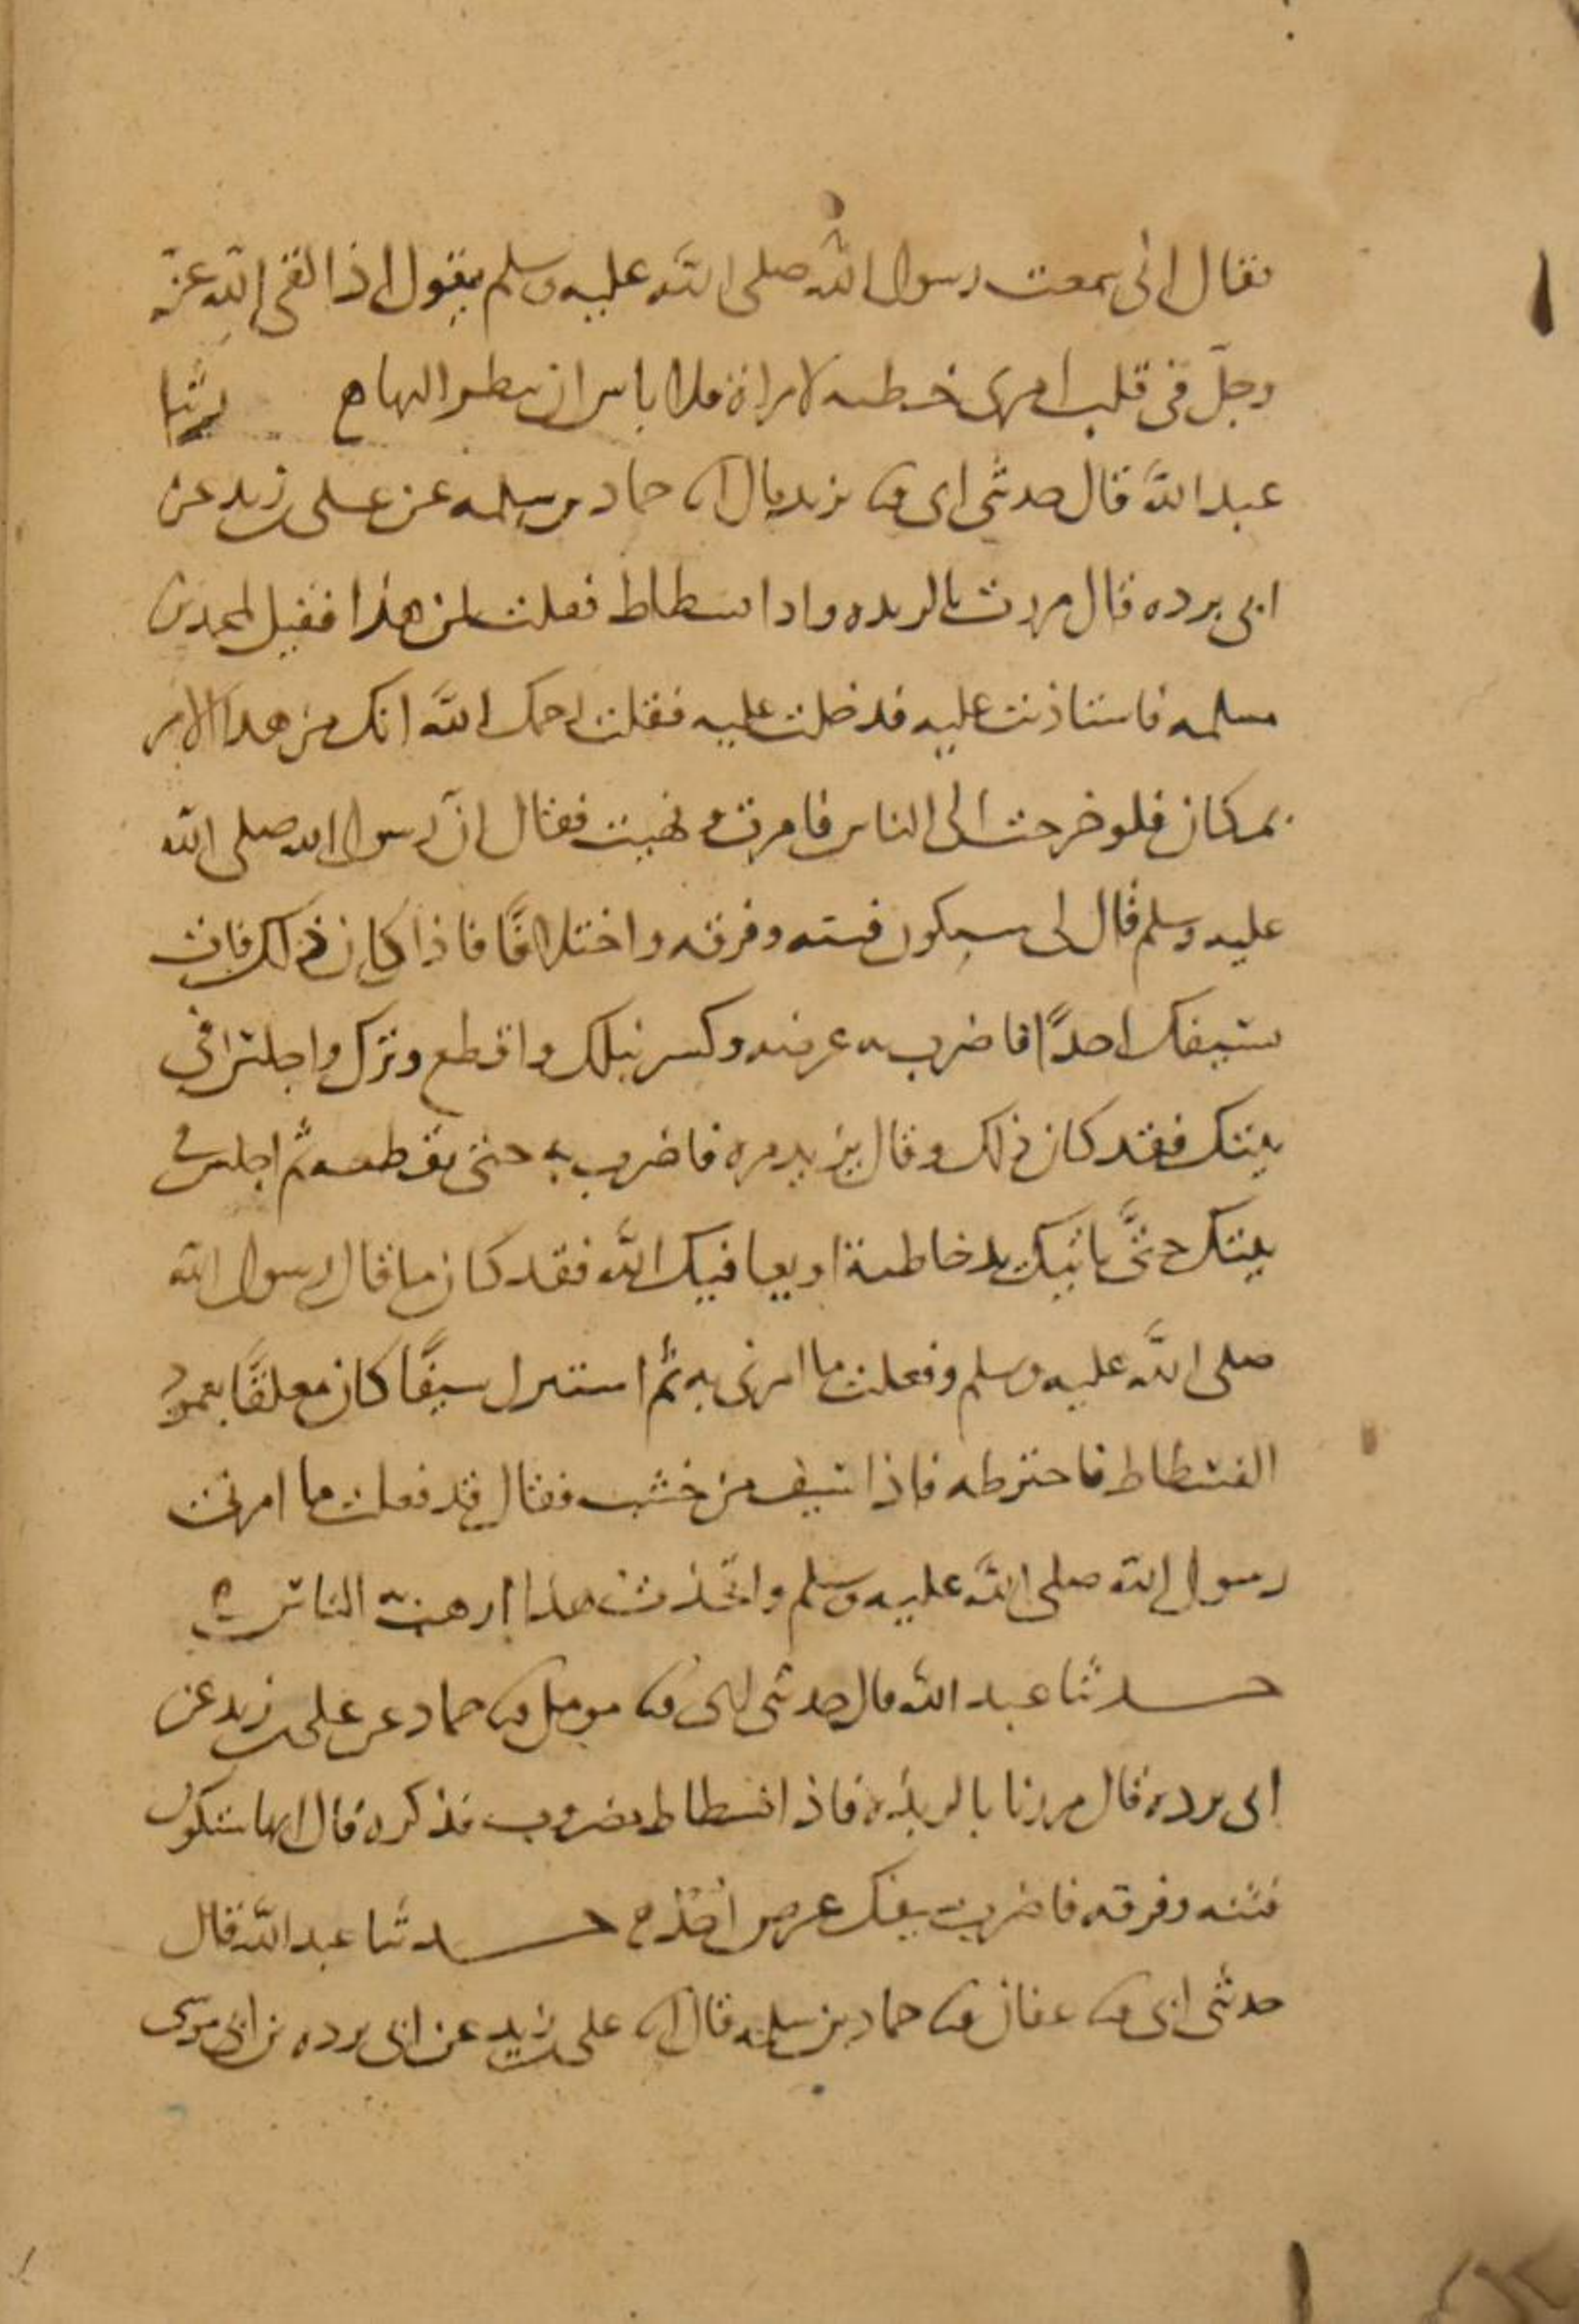 فقال انى سمعت رسول الله صلى الله عليه وسلم يقول اذا القى الله عز
وجل فى قلب امرى خطبه لامراة فلا باس ان ينظر اليها ح حدثنا
عبد الله قال حدثنى ابى ثنا يزيد قال انا حماد بن سلمه عن على بن زيد عن
ابى برده قال مررت بالربذه واذا فسطاط فقلت لمن هذا فقيل لمحمد بن
مسلمه فاستاذنت عليه فدخلت عليه فقلت رحمك الله انك من هذا الامر
بمكان فلو خرجت الى الناس فامرت ونهيت فقال ان رسول الله صلى الله
عليه وسلم قال لى ستكون فتنه وفرقه واختلافا فاذا كان ذلك فات
بسيفك احدا فاضرب به عرضه وكسر نبلك واقطع وترك واجلس فى
بيتك فقد كان ذلك وقال يزيد مره فاضرب به حتى تقطعه ثم اجلس فى
بيتك حتى ياتيك يد خاطية او يعافيك الله فقد كان ما قال رسول الله
صلى الله عليه وسلم وفعلت ما امرنى به ثم استنزل سيفا كان معلقا بعمود
الفسطاط فاخترطه فاذا سيف من خشب فقال قد فعلت ما امرنى
رسول الله صلى الله عليه وسلم واتخذت هذا ارهب به الناس
حدثنا عبد الله قال حدثنى ابى ثنا مومل ثنا حماد عن على بن زيد عن
ابى برده قال مررنا بالربذه فاذا فسطاط مضروب فذكره قال انها ستكون
فتنه وفرقه فاضرب بسيفك عرض احد ح حدثنا عبد الله قال
حدثنى ابى ثنا عفان ثنا حماد بن سلمه قال انا على بن زيد عن ابى برده بن ابى موسى